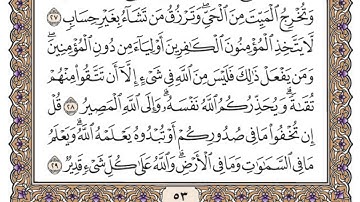 وَتُخْرِجُ ٱلْمَيِّتَ مِنَ ٱلْحَىِّ ۖ وَتَرْزُقُ مَن تَشَآءُ بِغَيْرِ حِسَابٍ ٢٧
لَّا يَتَّخِذِ ٱلْمُؤْمِنُونَ ٱلْكَٰفِرِينَ أَوْلِيَآءَ مِن دُونِ ٱلْمُؤْمِنِينَ ۖ
وَمَن يَفْعَلْ ذَٰلِكَ فَلَيْسَ مِنَ ٱللَّهِ فِى شَىْءٍ إِلَّآ أَن تَتَّقُوا۟ مِنْهُمْ
تُقَىٰةً ۗ وَيُحَذِّرُكُمُ ٱللَّهُ نَفْسَهُۥ ۗ وَإِلَى ٱللَّهِ ٱلْمَصِيرُ ٢٨ قُلْ
إِن تُخْفُوا۟ مَا فِى صُدُورِكُمْ أَوْ تُبْدُوهُ يَعْلَمْهُ ٱللَّهُ ۗ وَيَعْلَمُ
مَا فِى ٱلسَّمَٰوَٰتِ وَمَا فِى ٱلْأَرْضِ ۗ وَٱللَّهُ عَلَىٰ كُلِّ شَىْءٍ قَدِيرٌ ٢٩
٥٣